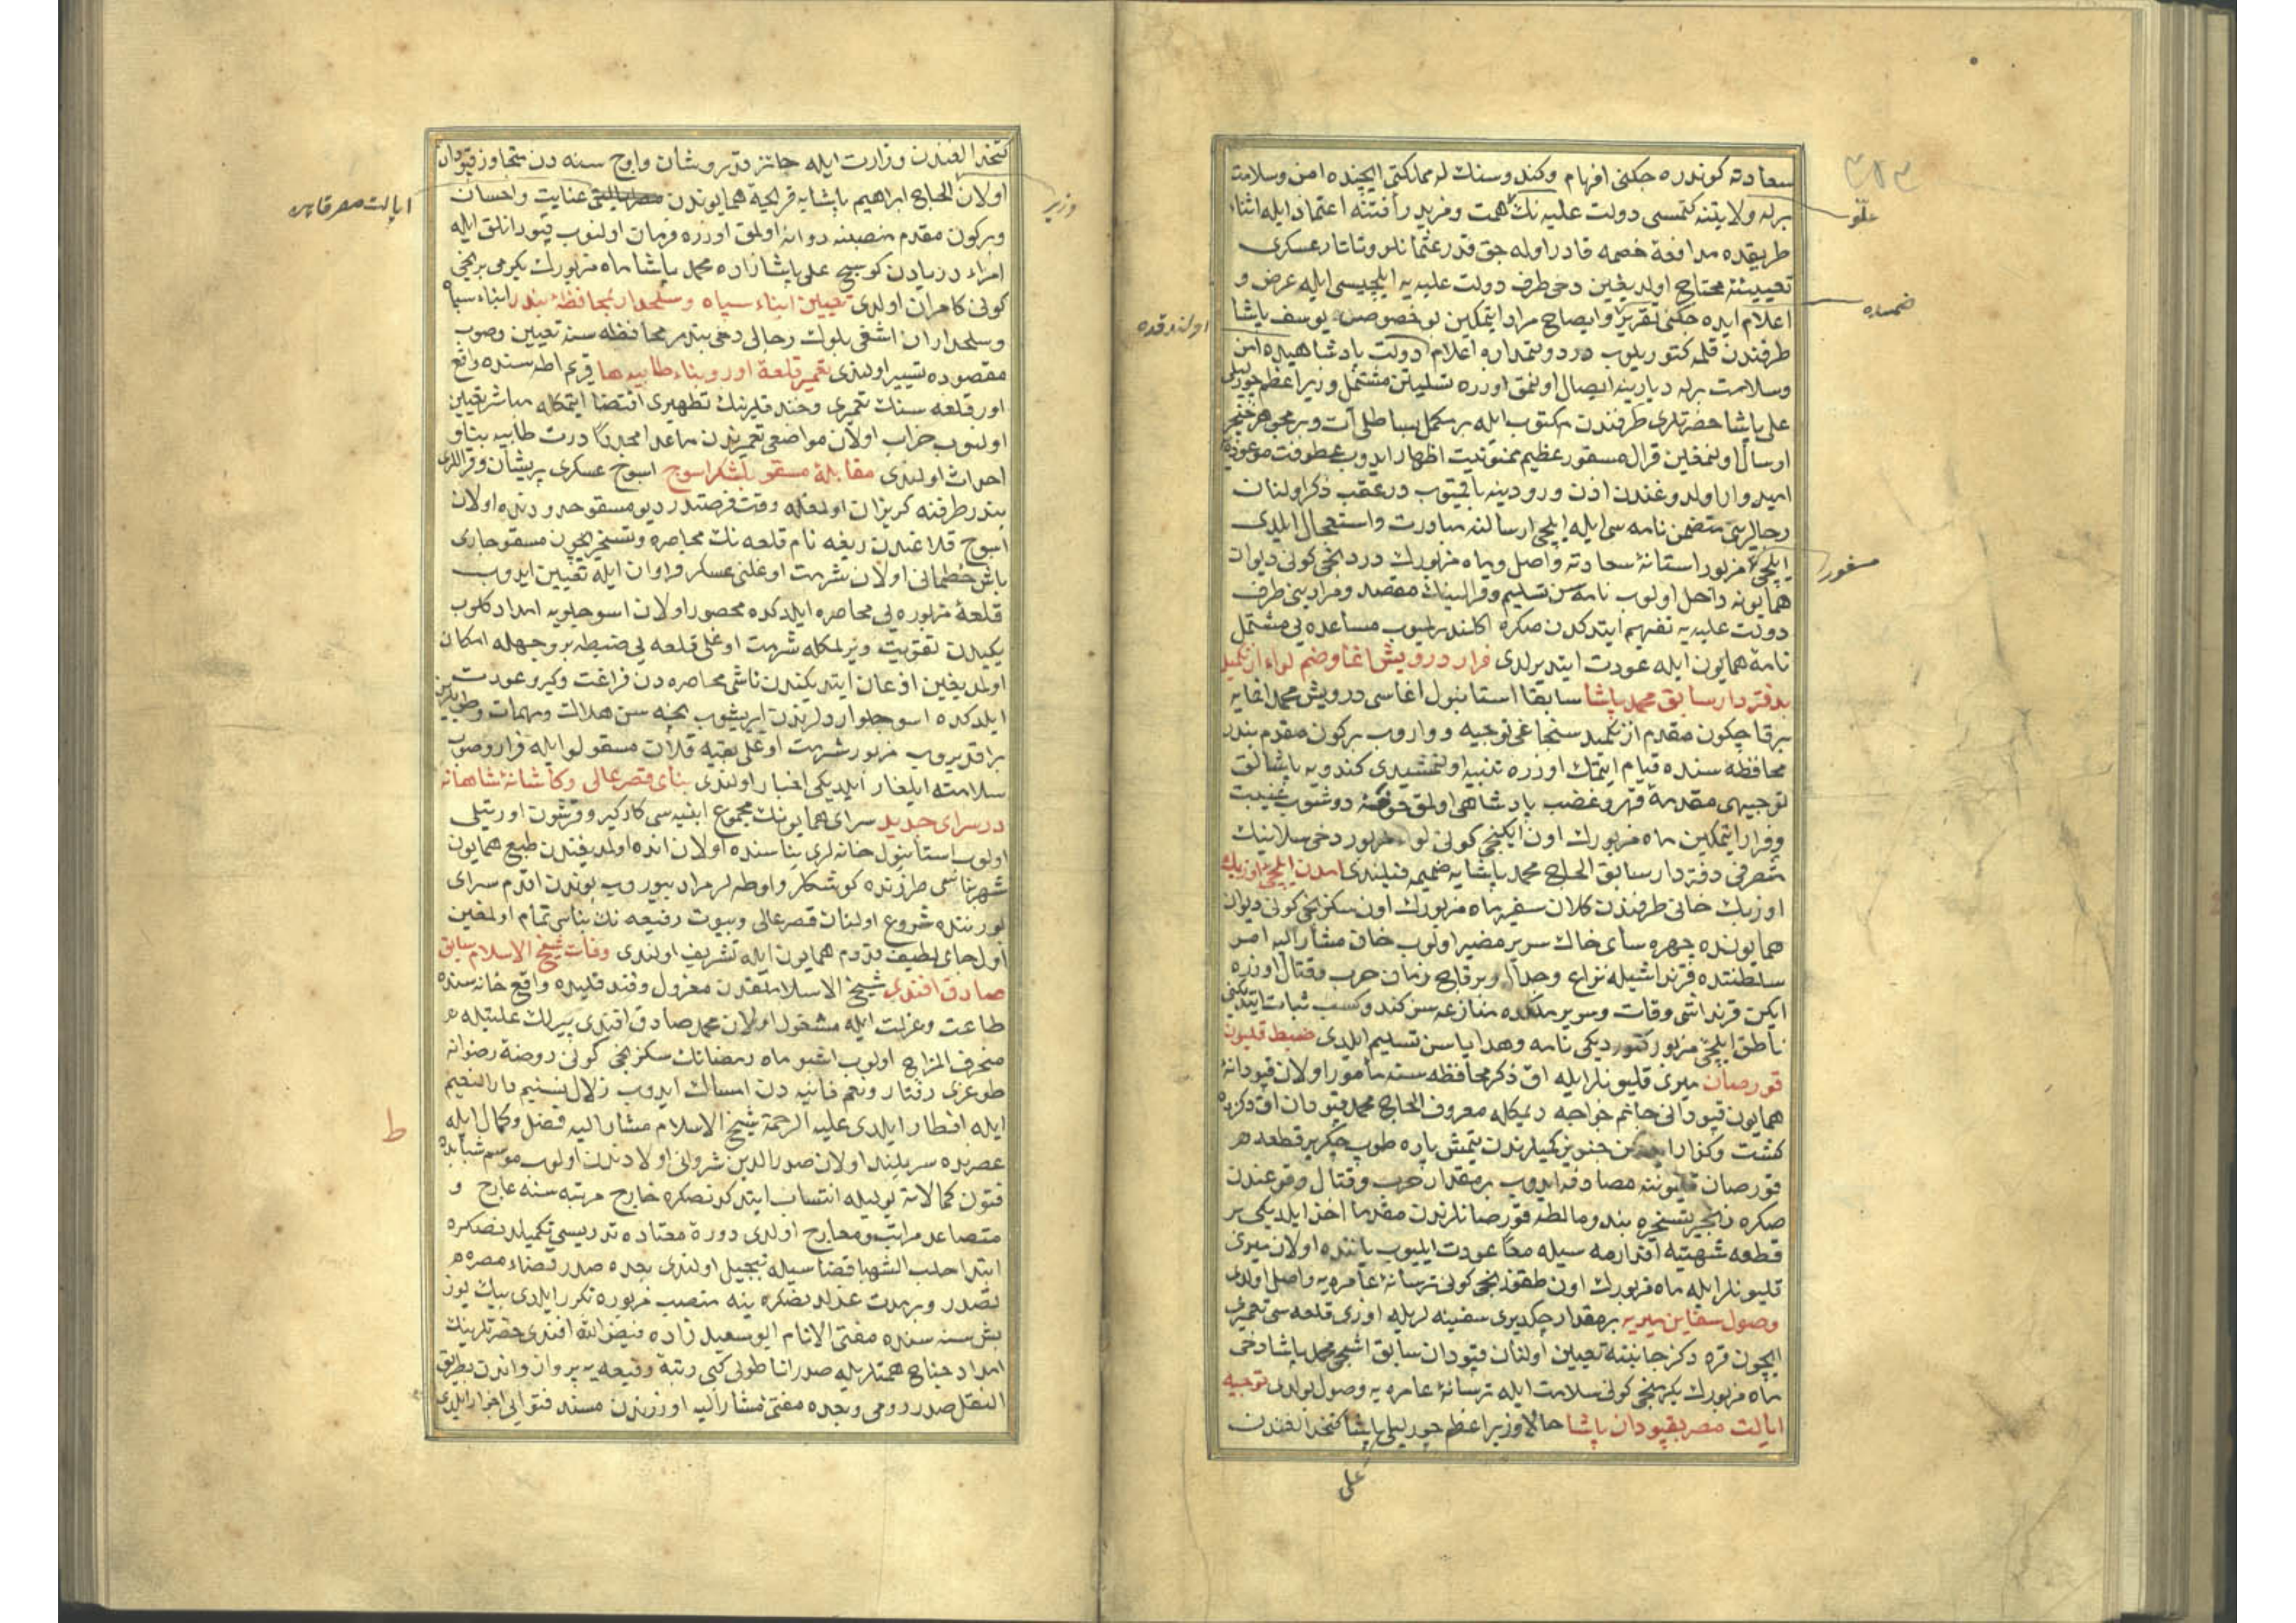 سعادته كوندره جكنی افهام وكندوسنك له ممالكتی ایچنده امن وسلامت
برله ولایتنه كتمسی دولت علیه نك همت ومزید رأفتنه اعتماد ایله اثناء
طریقده مدافعۀ خصمه قادر اوله جق قدر عثمانلو وتاتار عسكری
تعییننه محتاج اولدیغین دخی طرف دولت علیه یه ایلچیسی ایله عرض و
اعلام ایده جكنی تقریر وایضاح مراد ایتمكین بو خصوص یوسف پاشا
طرفندن قلمه كتوریلوب در دولتمداره اعلام دولت پادشاهیده امن
وسلامت برله دیارینه ایصال اولنمق اوزره تسلیتن مشتمل وزیر اعظم چورلیلی
علی پاشا حضرتلری طرفندن مكتوب ایله بر مكمل بساطلی آت وبر مجوهر خنجر
ارسال اولنمغین قرال مسفور عظیم ممنونیت اظهار ایدوب عطوفت موعوده یه
امیدوار اولدوغندن اذن ورودینه باقیوب درعقب ذكر اولنان
رجالرین متضمن نامه سی ایله ایلچی ارسالنه مبادرت واستعجال ایلدی
ایلچئ مزبور استانۀ سعادته واصل وماه مزبورك دردنجی كونی دیوان
همایونه داخل اولوب نامه سن تسلیم وقرالینك مقصد ومرادینی طرف
دولت علیه یه تفهیم ایتدكدن صكره مساعده یی مشتمل
نامۀ همایون ایله عودت ایتدیرلدی فرار درویش اغا وضم لواء ازنكمید
بدفتردار سابق محمد پاشا سابقا استانبول اغاسی درویش محمد اغایه
برقاچ كون مقدم ازنكمید سنجاغی توجیه و واروب بركون مقدم بندر
محافظه سنده قیام ایتمك اوزره تنبیه اولنمشیدی كندویه پاشالق
توجیهی مقدمۀ قهر وغضب پادشاهی اولمق دوشوب غیبت
وفرار ایتمكین ماه مزبورك اون ایكنجی كونی لواء مزبور دخی سلانیك
متصرفی دفتردار سابق الحاج محمد پاشایه ضمیمه قیلندی آمدن ایلچئ اوزبك
اوزبك خانی طرفندن كلان سفیر ماه مزبورك اون سكزنجی كونی دیوان
همایونده چهره سای خاك سریر مضیر اولوب خان مشار الیه امر
سلطنتده قرنداشیله نزاع وجدال وبرقاچ زمان حرب وقتال اوزره
ایكن قرنداشی وفات وسریر ملكده منازعه سن كندو كسب ثبات ایتدیكنی
ناطق ایلچئ مزبور كتوردیكی نامه وهدایاسن تسلیم ایلدی ضبط قلیون
قورصان میری قلیونلر ایله اق ذكز محافظه سنه مأمور اولان قپودانۀ
همایون قپودانی جانم خواجه دیمكله معروف الحاج محمد قپودان اق دكزده
كشت وكذار ایدركن جنویز كمیلرندن یتمش پاره طوپ چكر بر قطعه
قورصان قلیوننه مصادفه ایدوب بر مقدار حرب وقتال وقوعندن
صكره زنجیر تسخیره بند ومالطه قورصانلرندن مقدما اخذ ایلدیكی بر
قطعه شهتیه افتارمه سیله معا عودت ایلیوب یاننده اولان میری
قلیونلر ایله ماه مزبورك اون طقوزنجی كونی ترسانۀ عامره یه واصل اولدی
وصول سفاین میریه بر مقدار چكدیری سفینه لریله اوزی قلعه سی تعمیری
ایچون قره دكز جانبنه تعیین اولنان قپودان سابق اشجی محمد پاشا دخی
ماه مزبورك یكرمنجی كونی سلامت ایله ترسانۀ عامره یه وصول بولدی توجیه
ایالت مصر بقپودان پاشا حالا وزیر اعظم چورلیلی پاشا كتخدالغندن
علی
۳۸۳
علّو
ضمساه
اولندقده
مسفور
كتخدالغندن وزارت ایله حائز قدر وشان واوچ سنه دن متجاوز قپودان
اولان الحاج ابراهیم پاشایه قریحۀ همایوندن عنایت واحسان
وبركون مقدم منصبنه روانه اولمق اوزره فرمان اولنوب قپودانلق ایله
امراء دریادن كوسج علی پاشازاده محمد پاشا ماه مزبورك یكرمی برنجی
كونی كامران اولدی تعیین ابناء سپاه وسلحدار بمحافظۀ بندر ابناء سپاه
وسلحداران اشغی بلوك رجالی دخی بندر محافظه سنه تعیین وصوب
مقصوده تسییر اولندی تعمیر قلعۀ اور وبناء طابیه ها قریم اطه سنده واقع
اور قلعه سنك تعمیری وخندقلرینك تطهیری اقتضا ایتمكله مباشر تعیین
اولنوب خراب اولان مواضعی تعمیرندن ماعدا مجددا درت طابیه بنا و
احداث اولندی مقابلۀ مسقو بلشكر اسوج اسوج عسكری پریشان وقراللری
بندر طرفنه كریزان اولمغله وقت فرصتدر دیو مسقو حدودنده اولان
اسوج قلاعندن ریغه نام قلعه نك محاصره وتسخیریچون مسقو چاری
باش خطمانی اولان شرمت اوغلنی عسكر فراوان ایله تعیین ایدوب
قلعۀ مزبوره یی محاصره ایلدكده محصور اولان اسوجلویه امداد كلوب
یكیدن تقویت ویرلمكله شرمت اوغلی قلعه یی ضبطه بر وجهله امكان
اولمدیغین اذعان ایتدیكندن ناشی محاصره دن فراغت وكیرو عودت
ایلدكده اسوجلو اردلرندن ایریشوب نیجه سن هلاك ومهمات وطوپلرین
براقدیروب مزبور شرمت اوغلی بقیه قلان مسقولو ایله فرار وصوب
سلامته ایلغار ایلدیكی اخبار اولندی بنای قصر عالی وكاشانۀ شاهانه
در سرای جدید سرای همایونك مجموع ابنیه سی كارگیر وقرشون اورتیلی
اولوب استانبول خانه لری بناسنده اولان انده اولمدیغندن طبع همایون
شهرناشی طرزنده كوشكلر واوطه لر مراد بیوروب بوندن اقدم سرای
بوزنتده شروع اولنان قصر عالی وبیوت رفیعه نك بناسی تمام اولمغین
اول جای لطیف قدوم همایون ایله تشریف اولندی وفات شیخ الاسلام سابق
صادق افندی شیخ الاسلاملقدن معزول وفندقلیده واقع خانه سنده
طاعت وعزلت ایله مشغول اولان محمد صادق افندی پیرلك علتیله
منحرف المزاج اولوب اشبو ماه رمضانك سكزنجی كونی روضۀ رضوانه
طوغری رفتار ونعم فانیه دن امساك ایدوب زلال تسنیم دار النعیم
ایله افطار ایلدی علیه الرحمة شیخ الاسلام مشار الیه فضل وكمال ایله
عصرنده سربلند اولان صدر الدین شروانی اولادندن اولوب موسم شبابده
فنون كمالاته یولیله انتساب ایتدكدنصكره خارج مرتبه سنه عارج و
متصاعد مراتب ومعارج اولدی دورۀ معتاده تدریسی تكمیلدنصكره
ابتدا حلب الشهبا قضاسیله تبجیل اولندی بعده صدر قضاء مصره
تصدر وبر مدت عزلدنصكره ینه منصب مزبوره تكرر ایلدی بیك یوز
بش سنه سنده مفتئ الانام ابو سعید زاده فیض الله افندی حضرتلرینك
امداد جناح همتلریله صدر اناطولی كبی رتبۀ رفیعه یه پروان واندن بطریق
النقل صدر روم وبعده مفتئ مشار الیه اوزرندن مسند فتوایی احراز ایلدی
وزیر
ایالت مصر قاهره
ط